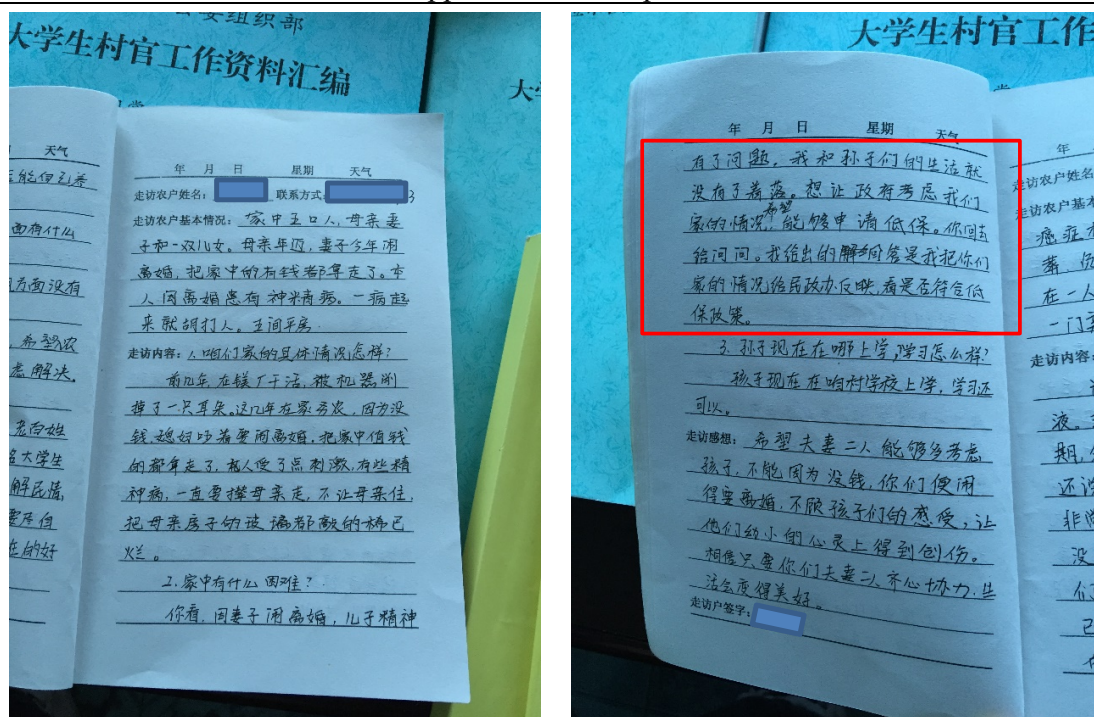 委组织部
大学生村官工作资料汇编
大
天气
面有什么
方面没有
希望农
虑解决。
老百姓
名大学生
解民情,
在的好
年 月 日 星期 天气
走访农户姓名: 联系方式: 3
走访农户基本情况: 家中五口人,母亲妻
子和一双儿女。母亲年迈,妻子今年闹
离婚,把家中的有钱都拿走了。本
人因离婚患有神米青病。一病起
来就胡打人。五间平房.
走访内容: 1.咱们家的具体情况怎样?
前几年在镁厂干活,被机器削
掉了一只耳朵。这几年在家务农,因为没
钱,媳妇吵着要闹离婚,把家中值钱
的都拿走了,本人受了点刺激,有些精
神病,一直要撵母亲走,不让母亲住,
把母亲房子的玻璃都敲的稀巴
烂。
2.家中有什么困难?
你看,因妻子闹离婚,儿子精神
大学生村官工作
年 月 日 星期 天气
有了问题,我和孙子们的生活就
没有了着落。想让政府考虑我们
家的情况,希望能够申请低保。你回去
给问问。我给出的回答是我把你们
家的情况给民政办反映,看是否符合低
保政策。
3.孙子现在在哪上学,学习怎么样?
孩子现在在咱村学校上学,学习还
可以。
走访感想: 希望夫妻二人能够多考虑
孩子,不能因为没钱,你们便闹
得要离婚,不顾孩子们的感受,让
他们幼小的心灵上得到创伤。
相信只要你们夫妻二人齐心协力,生
活会变得美好。
走访户签字:
年
走访农户姓名
走访农户基本
癌症
在一人
一门
走访内容:
液。
期,
还没
非
没
们
已